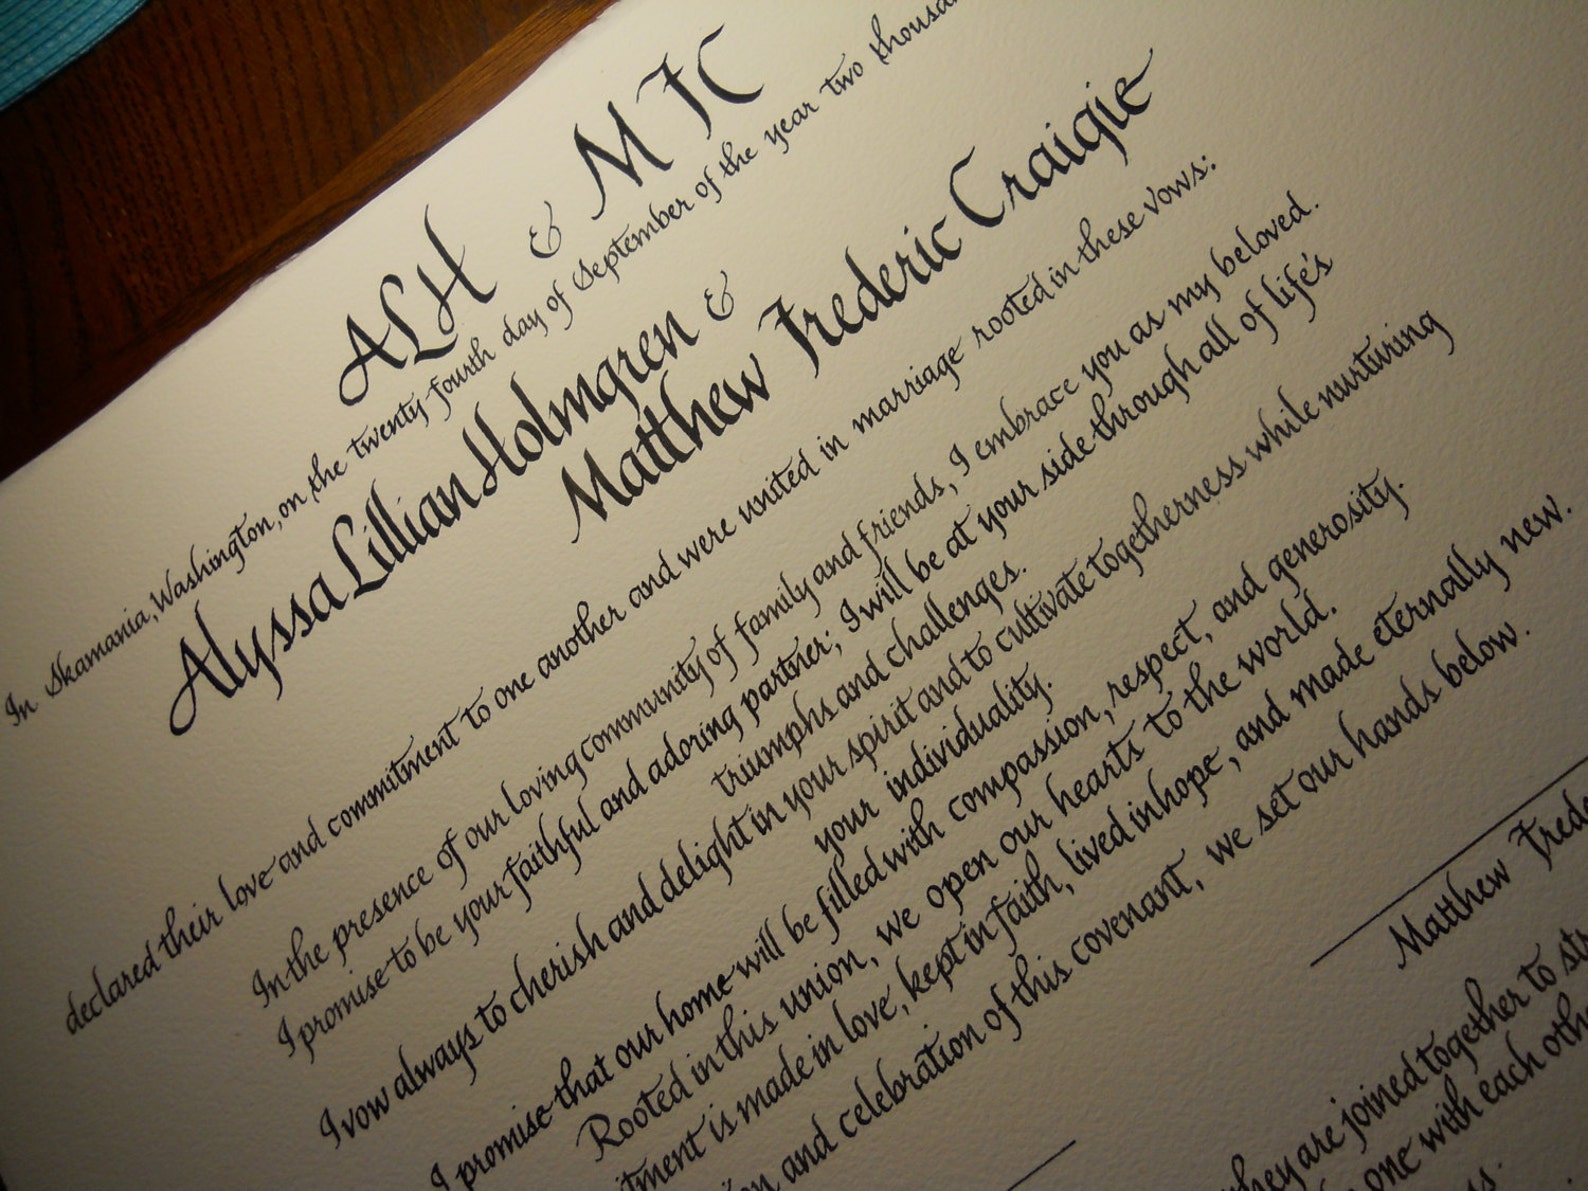 ALH & MFC
In Skamania, Washington, on the twenty-fourth day of September of the year two
Alyssa Lillian Holmgren &
Matthew Frederic Craigie
declared their love and commitment to one another and were united in marriage rooted in these vows:
In the presence of our loving community of family and friends, I embrace you as my beloved.
I promise to be your faithful and adoring partner; I will be at your side through all of life's
triumphs and challenges.
I vow always to cherish and delight in your spirit and to cultivate togetherness while nurturing
your individuality.
I promise that our home will be filled with compassion, respect, and generosity.
Rooted in this union, we open our hearts to the world.
is made in love, kept in faith, lived in hope, and made eternally new.
and celebration of this covenant, we set our hands below.
Matthew
they are joined together to
one with each